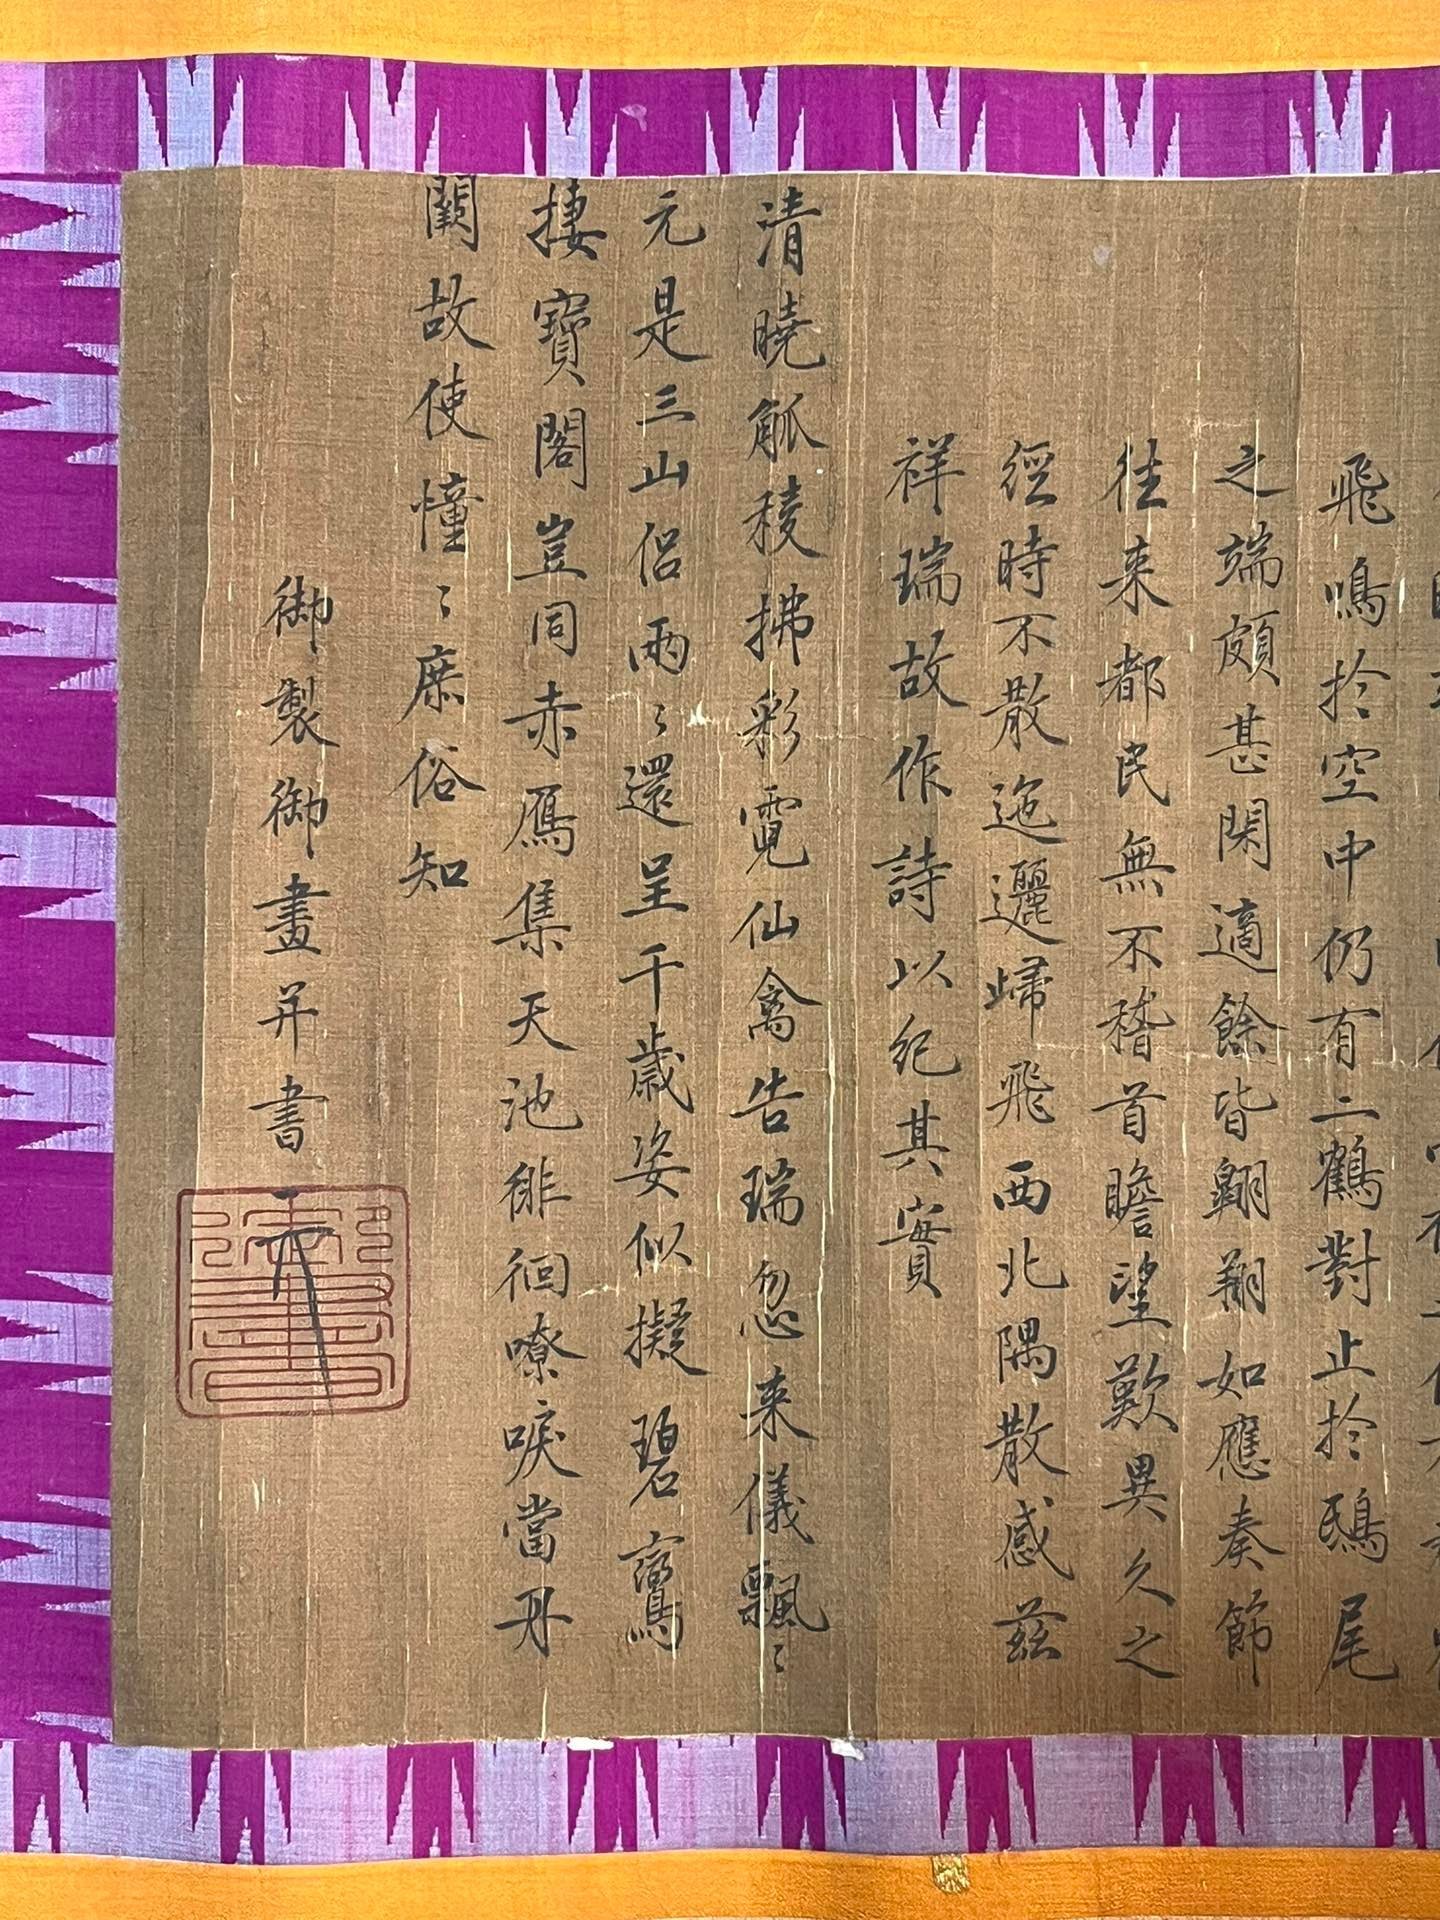 飛鳴於空中仍有二鶴對止於鴟尾
之端頗甚閑適餘皆翱翔如應奏節
往来都民無不稽首瞻望歎異久之
經時不散迤邐歸飛西北隅散感茲
祥瑞故作詩以紀其實
清曉觚稜拂彩霓仙禽告瑞忽来儀飄〻
元是三山侣兩〻還呈千歲姿似擬碧鸞
棲寶閣豈同赤鴈集天池徘徊嘹唳當丹
闕故使憧〻庶俗知
御製御畫并書